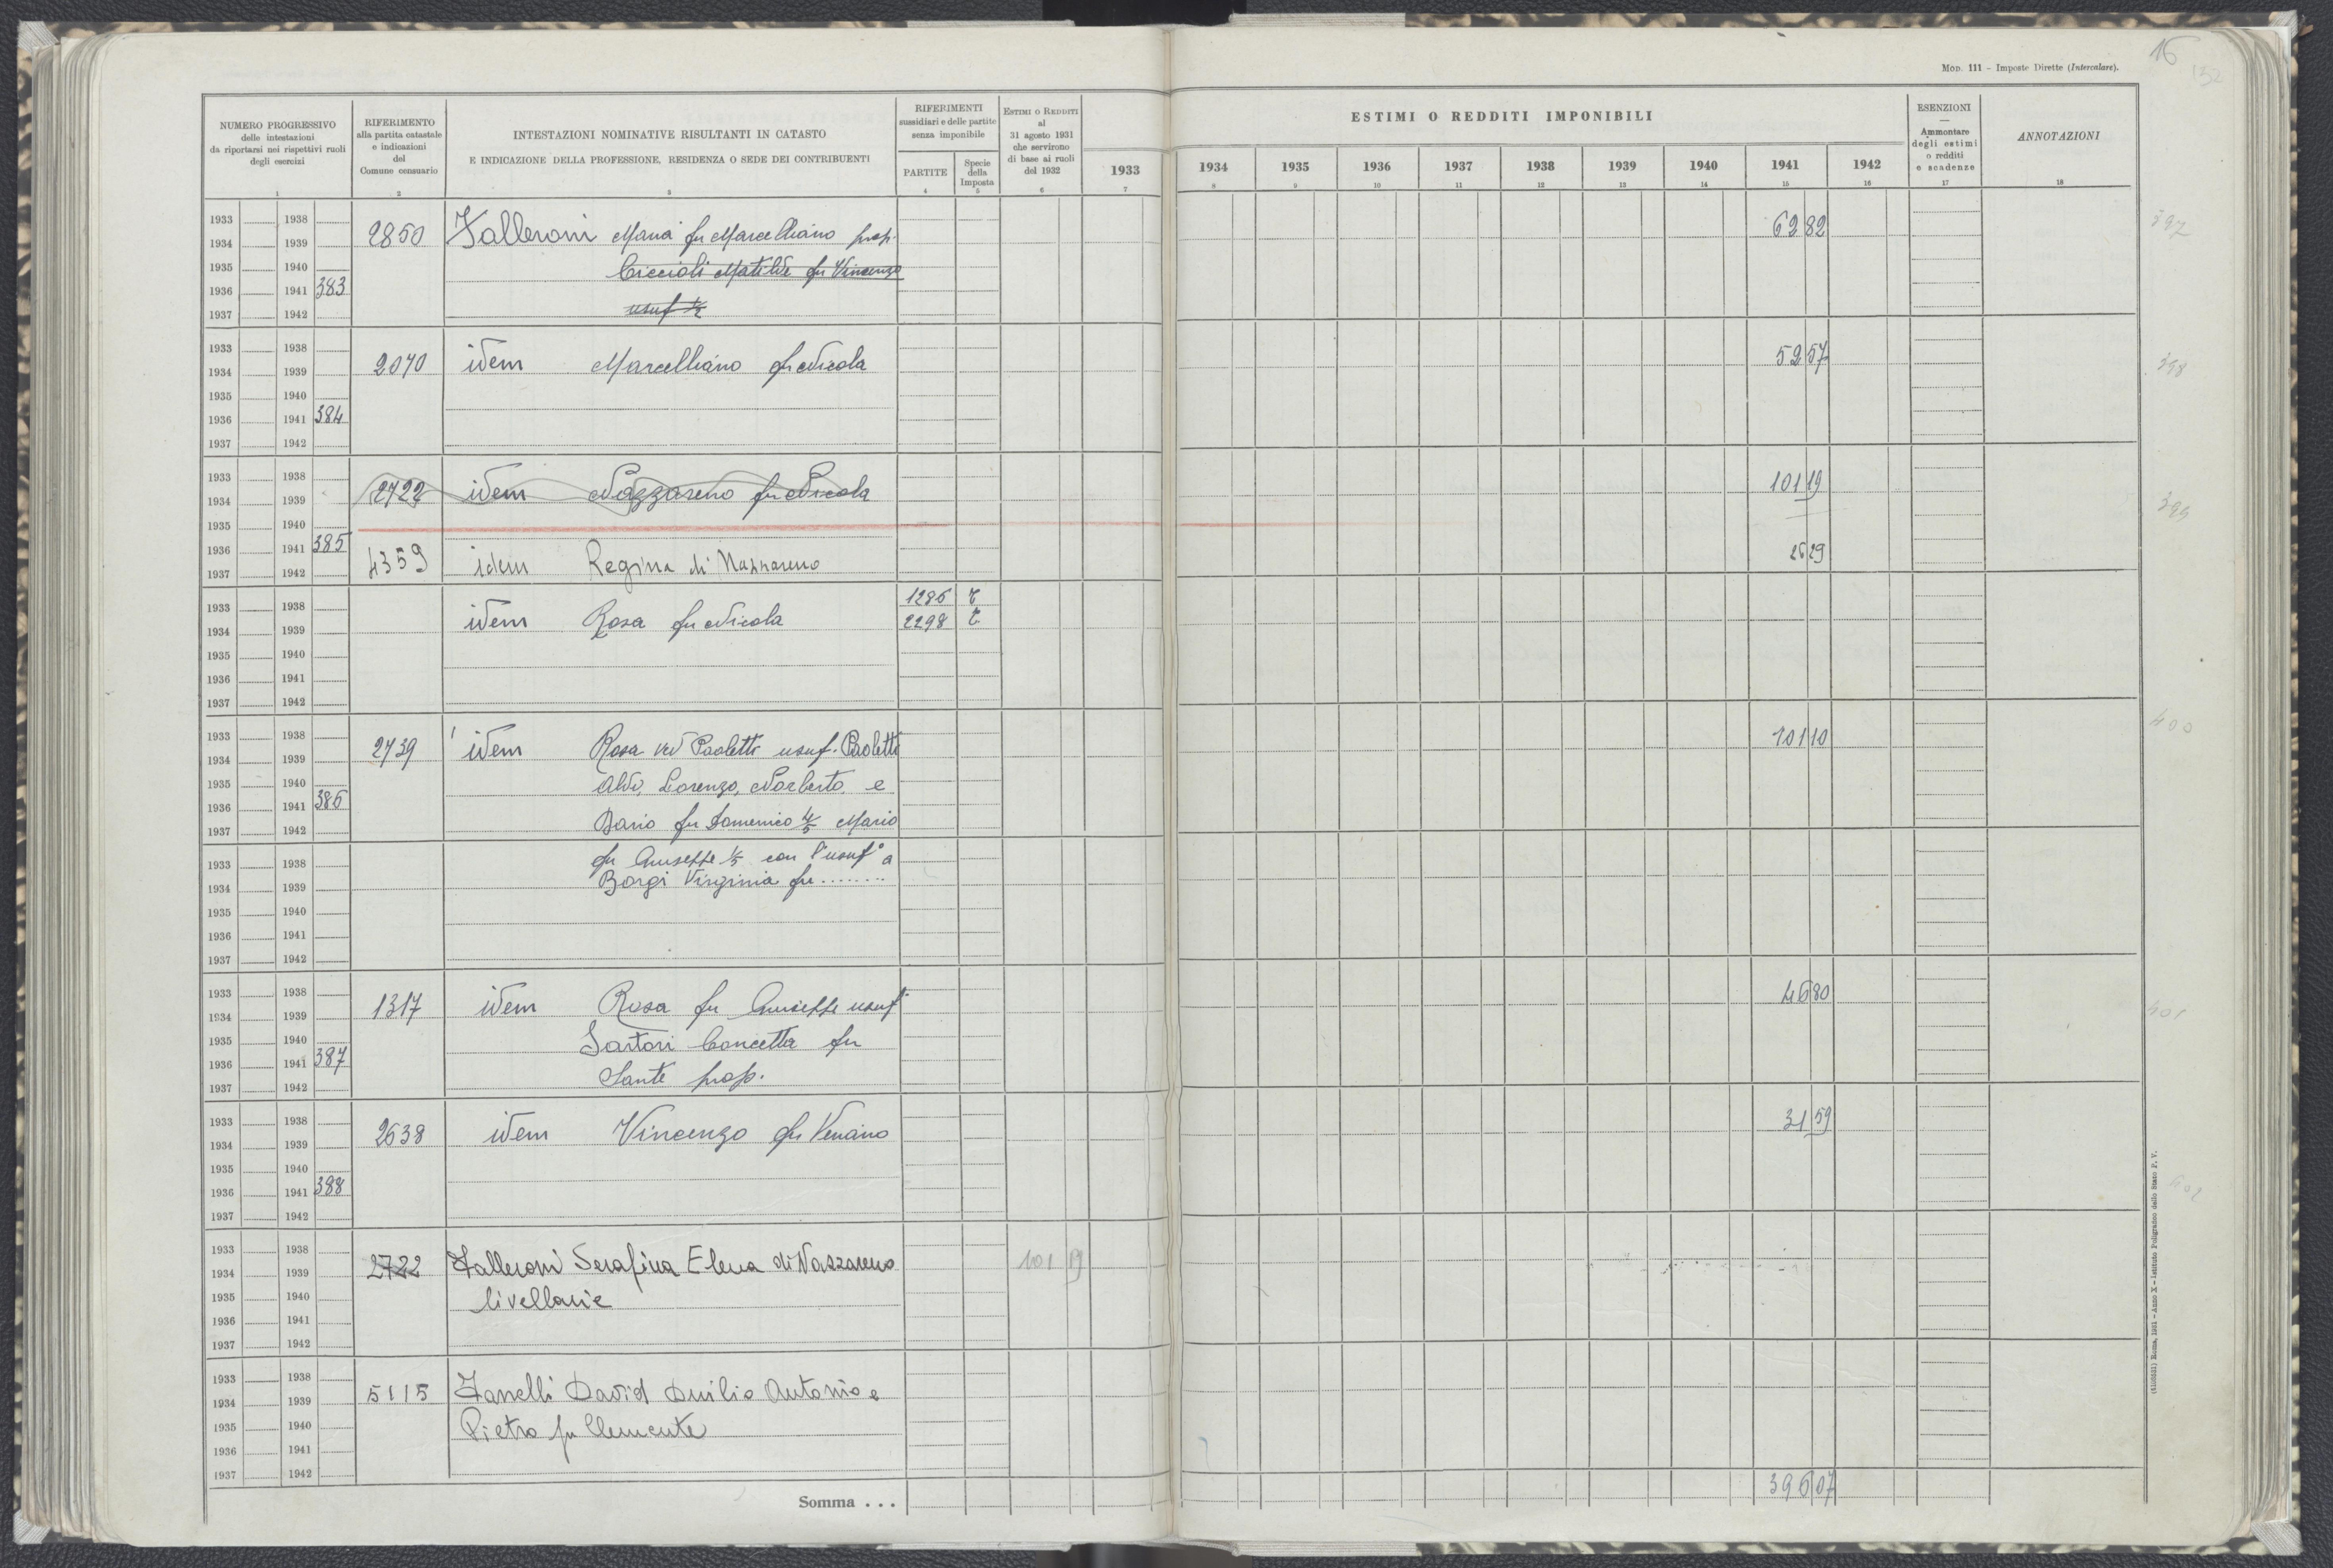 16
152
MOD. 111 - Imposte Dirette (Intercalare).
NUMERO PROGRESSIVO
delle intestazioni
da riportarsi nei rispettivi ruoli
degli esercizi
1
RIFERIMENTO
alla partita catastale
e indicazioni
del
Comune censuario
2
INTESTAZIONI NOMINATIVE RISULTANTI IN CATASTO
E INDICAZIONE DELLA PROFESSIONE, RESIDENZA O SEDE DEI CONTRIBUENTI
3
RIFERIMENTI
sussidiari e delle partite
senza imponibile
PARTITE
4
Specie
della
Imposta
5
ESTIMI O REDDITI
al
31 agosto 1931
che servirono
di base ai ruoli
del 1932
6
ESTIMI O REDDITI IMPONIBILI
1933 1934 1935 1936 1937 1938 1939 1940 1941 1942
7 8 9 10 11 12 13 14 15 16
ESENZIONI
—
Ammontare
degli estimi
o redditi
e scadenze
17
ANNOTAZIONI
18
1933 1938
1934 1939 2850 Zalleroni Maria fu Marcelliano prop. 62 82 397
1935 1940 Ciccioli Matilde fu Vincenzo
1936 1941 383
1937 1942 usuf 1/2
1933 1938
1934 1939 2070 idem Marcelliano fu Nicola 52 57 398
1935 1940
1936 1941 384
1937 1942
1933 1938
1934 1939 2722 idem Nazzareno fu Nicola 101 19 399
1935 1940
1936 1941 385
1937 1942 4359 idem Regina di Nazzareno 26 29
1933 1938 1286 T
1934 1939 idem Rosa fu Nicola 2298 T.
1935 1940
1936 1941
1937 1942
1933 1938
1934 1939 2739 idem Rosa ved Paoletti usuf. Paoletti 101 10 400
1935 1940 Aldo, Lorenzo, Norberto, e
1936 1941 386
1937 1942 Dario fu Domenico 4/5 Mario
1933 1938 fu Giuseppe 1/5 con l'usuf° a
1934 1939 Borgi Virginia fu ........
1935 1940
1936 1941
1937 1942
1933 1938
1934 1939 1317 idem Rosa fu Giuseppe usuf. 46 80 401
1935 1940 Sartori Concetta fu
1936 1941 387
1937 1942 Sante prop.
1933 1938
1934 1939 2638 idem Vincenzo fu Venanio 31 59
1935 1940
1936 1941 388 402
1937 1942
1933 1938
1934 1939 2722 Zalleroni Serafina Elena di Nazzareno 101 19
1935 1940 livellarie
1936 1941
1937 1942
1933 1938
1934 1939 5115 Zanelli David Duilio Antonio e
1935 1940 Pietro fu Clemente
1936 1941
1937 1942
Somma . . . 396 07
(3105531) Roma, 1931 - Anno X - Istituto Poligrafico dello Stato P. V.